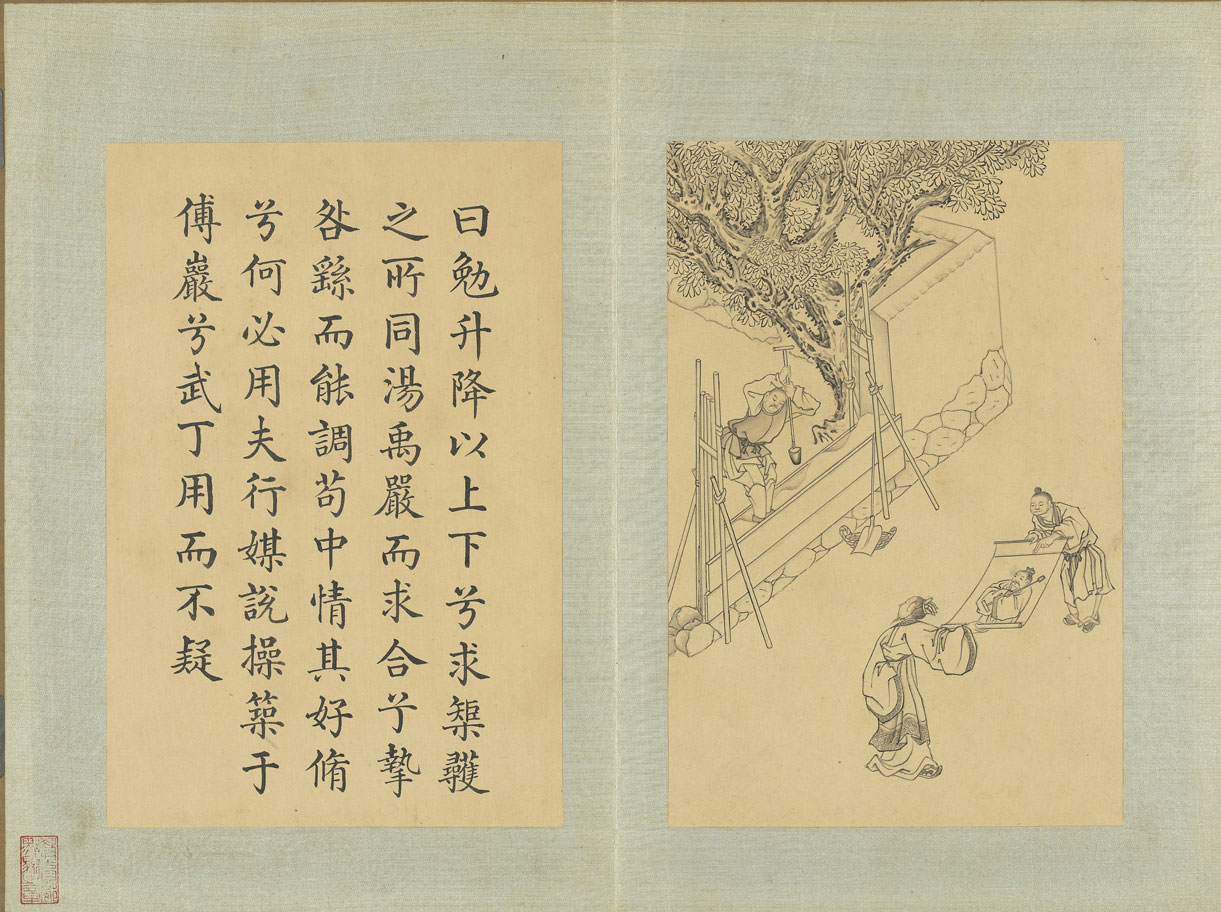 曰勉升降以上下兮求榘矱
之所同湯禹嚴而求合兮摯
咎繇而能調苟中情其好脩
兮何必用夫行媒說操築于
傅巖兮武丁用而不疑